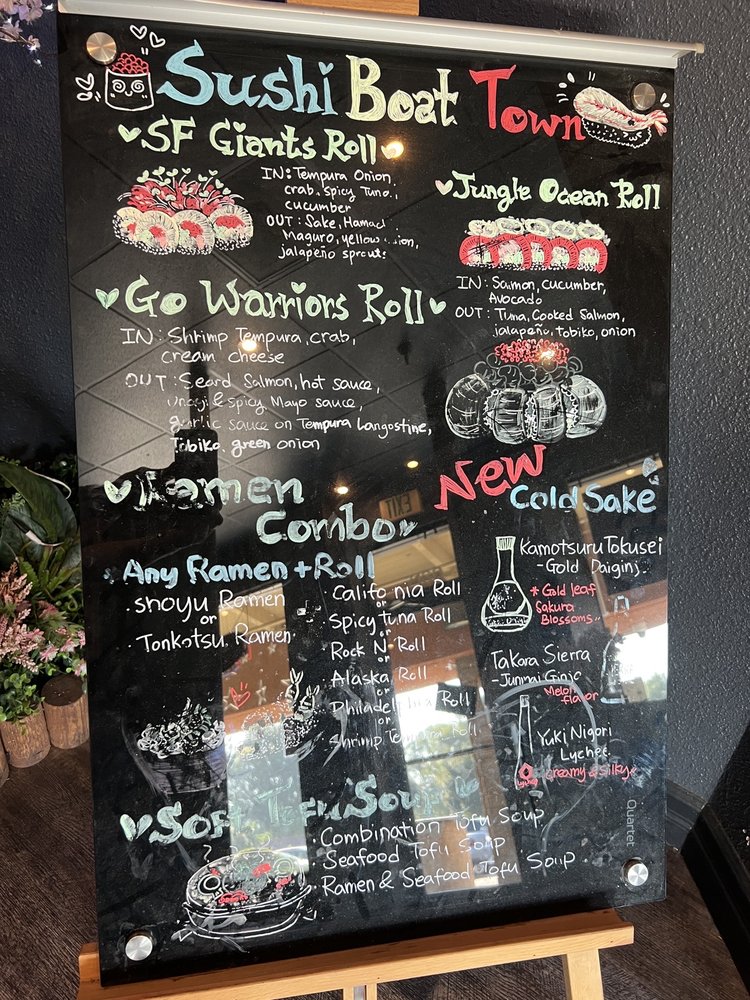 Sushi Boat Town
SF Giants Roll
IN: Tempura Onion,
crab, spicy Tuna,
cucumber
OUT: Sake,
Maguro, yellow
jalapeño
Jungle Ocean Roll
IN: Salmon, cucumber,
Avocado
OUT: Tuna, Cooked Salmon,
jalapeño, tobiko, onion
Go Warriors Roll
IN: Shrimp Tempura, crab,
cream cheese
OUT: Seard Salmon, hot sauce,
unagi & spicy Mayo sauce,
garlic sauce on Tempura Langostine,
Tobiko, green onion
Ramen
Combo
Any Ramen + Roll
· Shoyu Ramen
or
· Tonkotsu Ramen
· Califo nia Roll
or
Spicy tuna Roll
or
Rock N Roll
or
Alaska Roll
or
Philadelphia Roll
or
Shrimp Tempura Roll
New
Cold Sake
Kamotsuru Tokusei
- Gold Daiginj
* Gold leaf
Sakura
Blossoms
Takara Sierra
- Junmai Ginjo
Melon
flavor
Yuki Nigori
Lychee
creamy & silky
Lychee
Soft Tofu Soup
· Combination Tofu Soup
· Seafood Tofu Soup
· Ramen & Seafood Tofu Soup
Quartet
EXIT